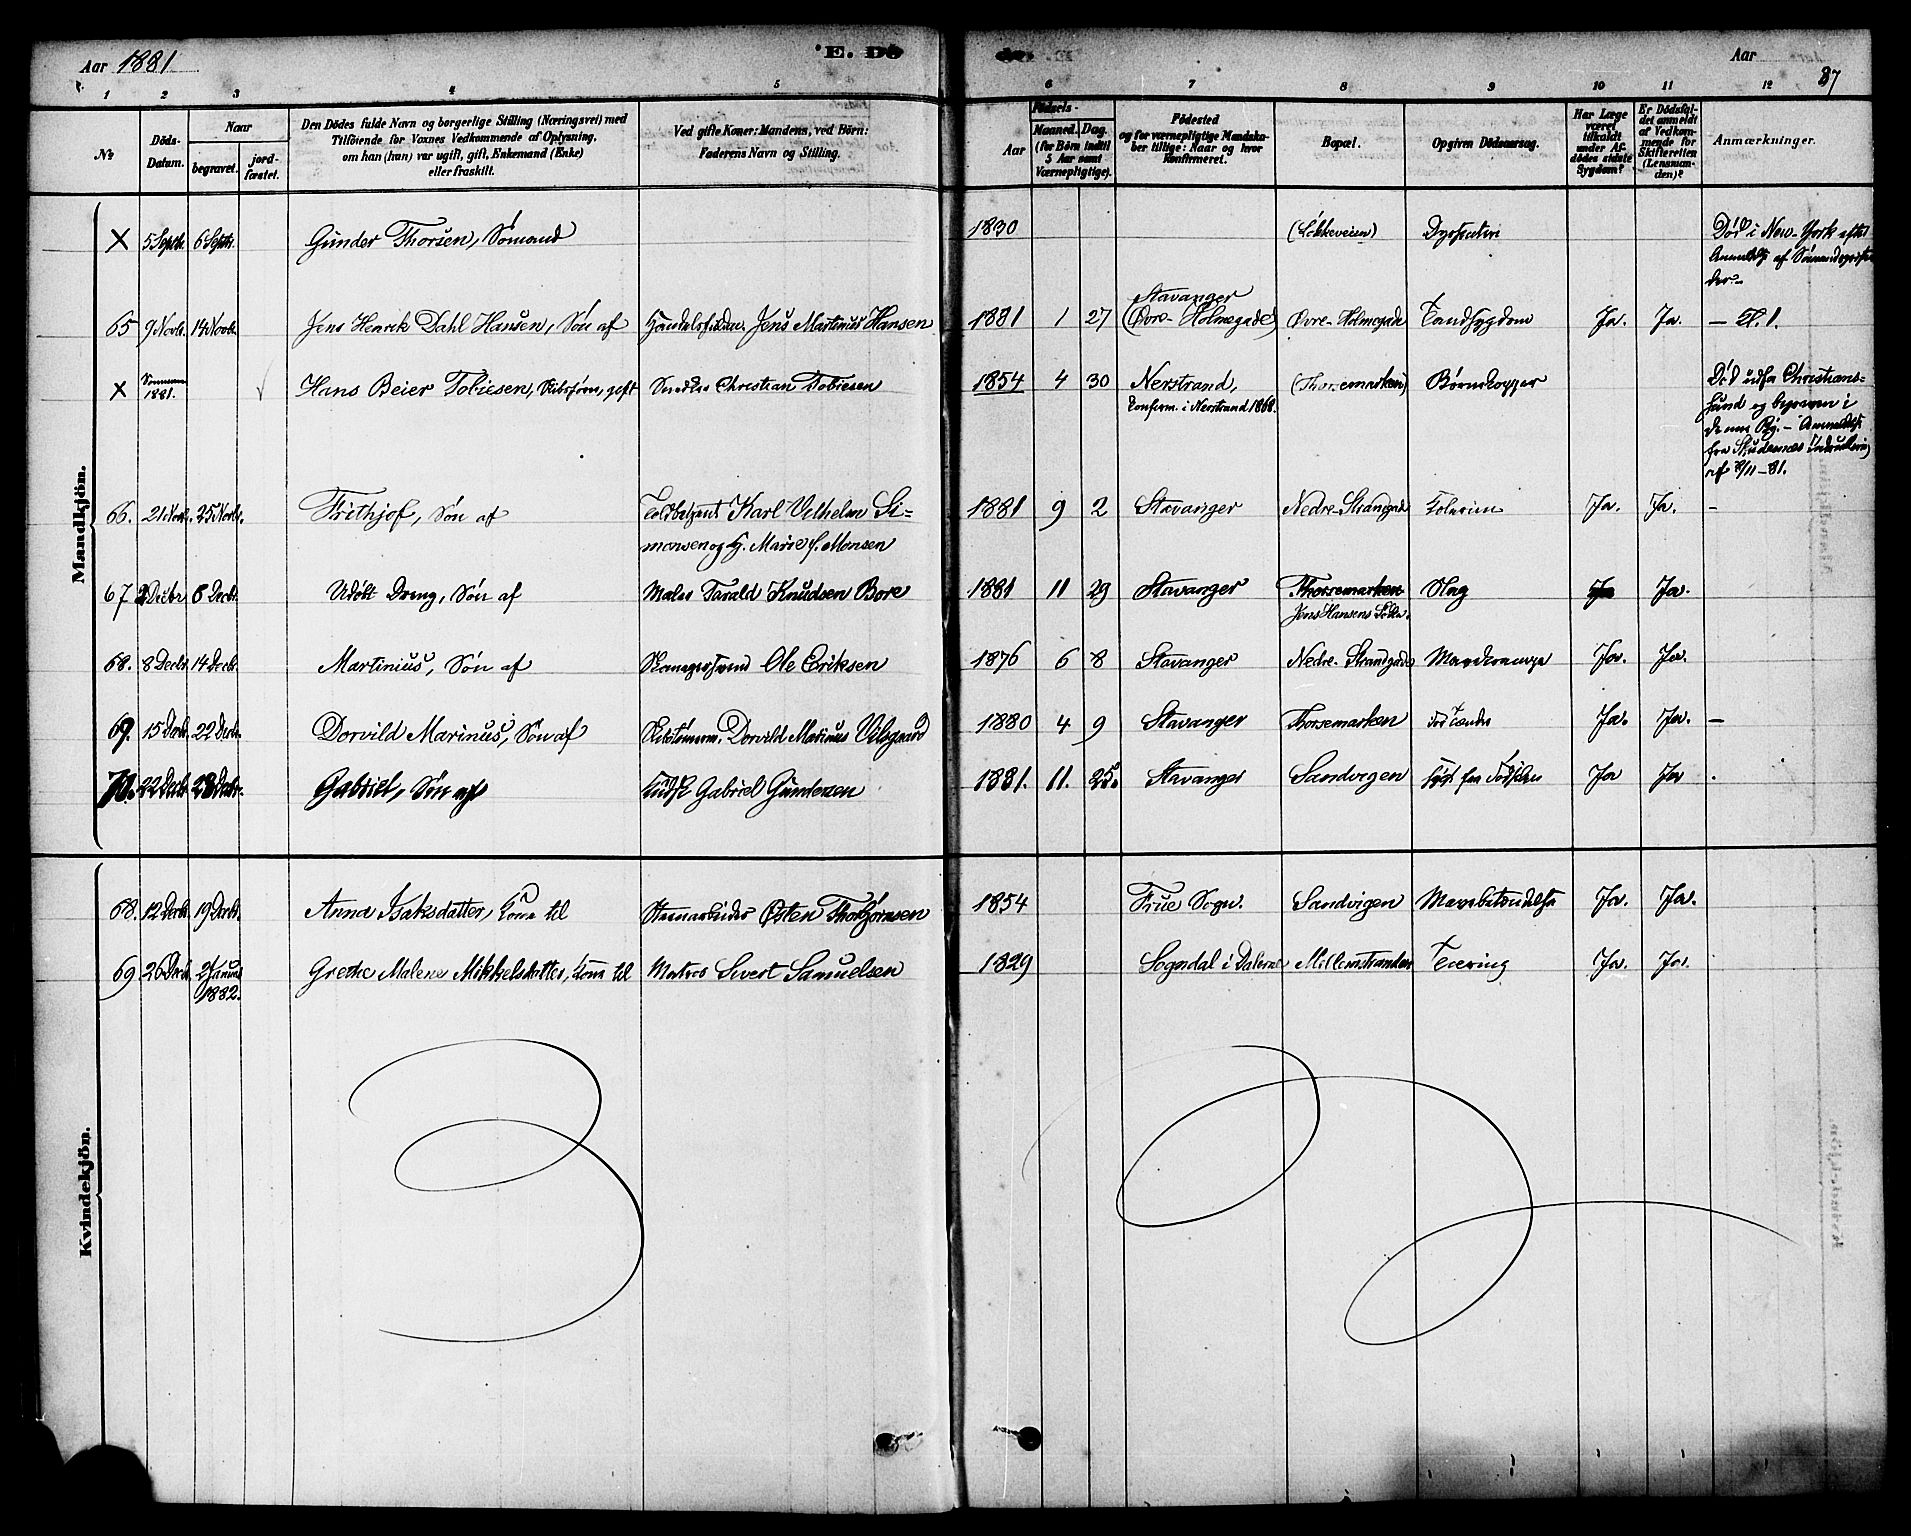 Aar 1881
E. Dö
Aar
87
1 2 3 4 5 6 7 8 9 10 11 12
No
Döds-Datum.
Naar
begravet.
jord-fæstet.
Den Dödes fulde Navn og borgerlige Stilling (Næringsvei) med
Tilföiende for Voxnes Vedkommende af Oplysning,
om han (hun) var ugift, gift, Enkemand (Enke)
eller fraskilt.
Ved gifte Koner: Mandens, ved Börn:
Faderens Navn og Stilling.
Födsels-
Aar
Maaned. Dag.
(for Börn indtil
5 Aar samt
Værnepligtige).
Födested
og for værnepligtige Mandska-
ber tillige: Naar og hvor
Konfirmeret.
Bopæl.
Opgiven Dödsaarsag.
Har Læge
været
tilkaldt
under Af-
dödes sidste
Sygdom?
Er Dödsfal-
det anmeldt
af Vedkom-
mende for
Skifteretten
(Lensman-
den)?
Anmærkninger.
Mandkjön.
X 5 Septb. 6 Septb. Gunder Thorsen, Sømand 1830 (Løkkeveien) Dysenteri Død i New-York efter
af
65 9 Novb. 14 Novb. Jens Henrik Dahl Hansen, Søn af Jens Martinius Hansen 1881 1 27 Stavanger
(Øvre-Holmegade) Øvre-Holmegade Tandsygdom Ja. Ja. —
X Sommeren
1881. Hans Beier Tobiesen, gift Snedker Christian Tobiesen 1854 4 30 Nerstrand,
Confirm. i Nerstrand 1868. (Thorsemarken) Børnekopper Død udfra Christians-
sund og begraven i
denne By. — Anmeldt
fra Skudesnes
af 8/11-81.
66. 21 Novb. 25 Novb. Frithjof, Søn af Toldbetjent Karl Vilhelm Si-
monsen og H. Marie f. Monsen 1881 9 2 Stavanger Nedre-Strandgade Kolerine Ja. Ja. -
67 2 Decbr 8 Decb. Udøbt Dreng, Søn af Maler Tarald Knudsen Bore 1881 11 29 Stavanger Thorsemarken
Jens Hansens Løkke. Slag Ja Ja.
68. 8 Decbr. 14 Decb. Martinius, Søn af Ole Eriksen 1876 6 8 Stavanger Nedre-Strandgade Ja. Ja.
69. 15 Decb. 22 Decb. Dorvild Marinus, Søn af Skibstømrm. Dorvild Marinus Vilsgaard 1880 4 9 Stavanger Thorsemarken Ja. Ja. —
70. 22 Decb. 28 Decbr. Gabriel, Søn af Gabriel Gundersen 1881. 11. 25. Stavanger Sandvigen fra Fødselen Ja Ja .
Kvindekjön.
68. 12 Decb. 19 Decb. Anna Isaksdatter, Kone til Stenarbeider Østen Thorbjørnsen 1854 Frue Sogn. Sandvigen Mavebetændelse Ja. Ja.
69 26 Decb. 2 Januar
1882. Grethe Malene Mikkelsdatter, Kone til Matros Sivert Samuelsen 1829 Sogndal i Dalerne Tæring Ja. Ja.